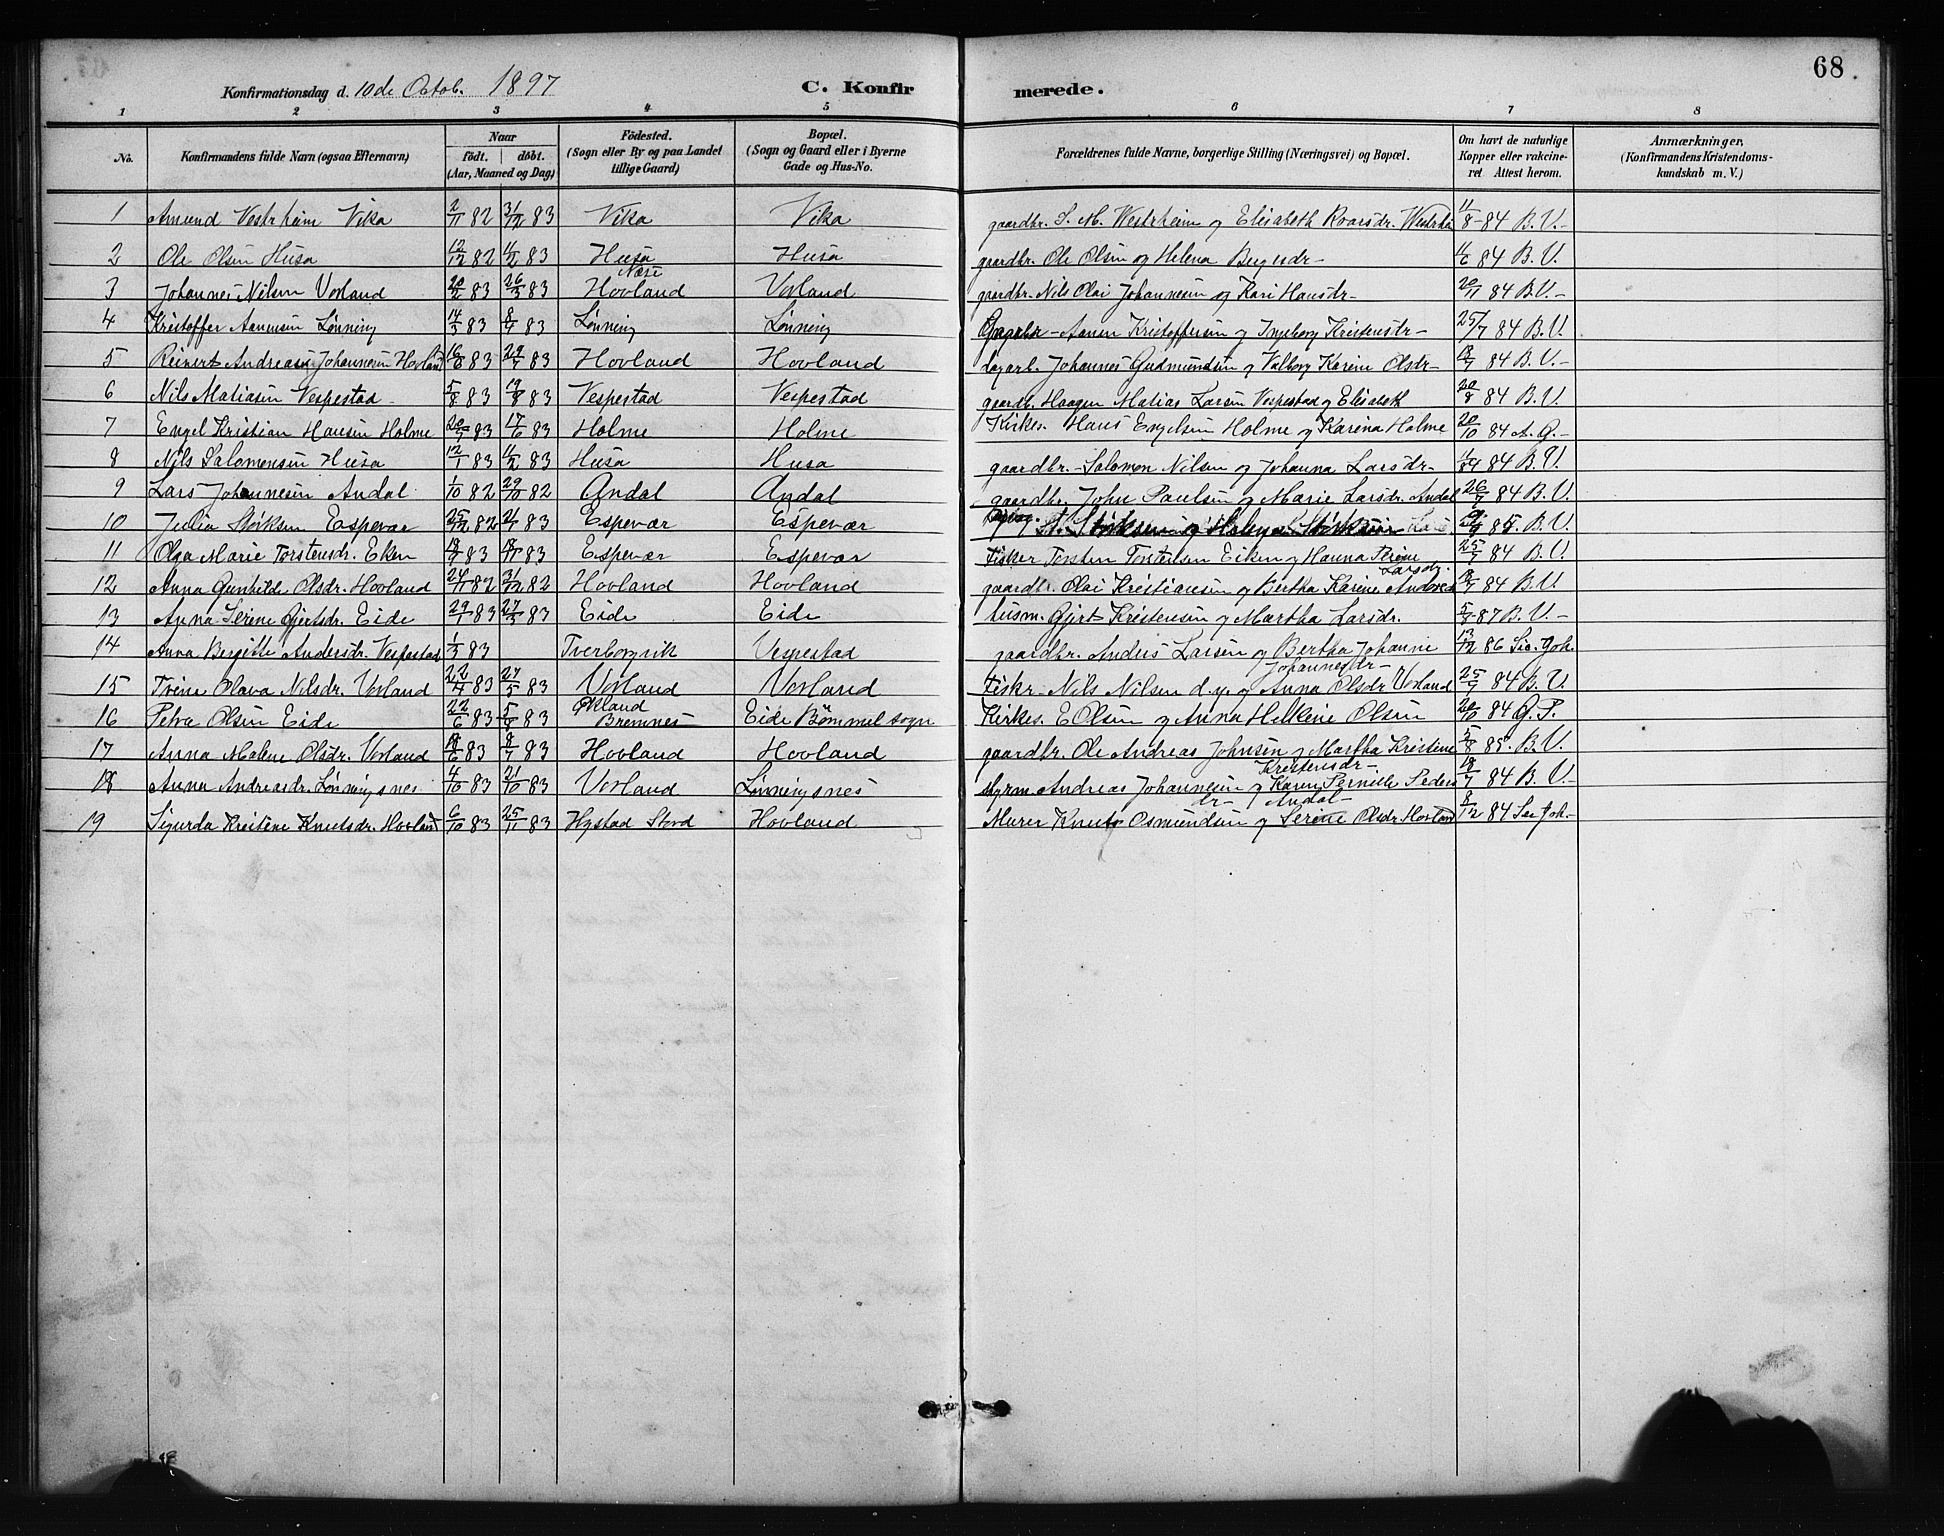 68
Konfirmationsdag d. 10de Octob. 1897 C. Konfirmerede.
1 2 3 4 5 6 7 8
No. Konfirmandens fulde Navn (ogsaa Efternavn) Naar födt. döbt. (Aar, Maaned og Dag) Födested. (Sogn eller By og paa Landet tillige Gaard) Bopæl. (Sogn og Gaard eller i Byerne Gade og Hus-No. Forældrenes fulde Navne, borgerlige Stilling (Næringsvei) og Bopæl. Om havt de naturlige Kopper eller vakcineret Attest herom. Anmærkninger, (Konfirmandens Kristendomskundskab m. V.)
1 Amund Vestrheim Vika 2/11 82 31/12 83 Vika Vika gaardbr. S. M. Westrheim og Elisabeth Roarsdr. 11/8 - 84 B. V. -
2 Ole Olsen Husa 12/12 82 11/2 83 Husa Husa gaardbr. Ole Olsen og Helena 11/6 84 B. V.
3 Johannes Nilsen Vorland 20/2 83 26/3 83 Næse Hovland Vorland gaardbr. Nils Olai Johannesen og Kari Hansdr - 20/11 84 B. V. -
4 Kristoffer Aanensen Lønning 14/5 83 8/7 83 Lønning Lønning Aanen Kristoffersen og Ingeborg Kristensdr - 25/7 84 B. V.
5 Reinert Andreas Johannesen Hovland 16/6 83 29/7 83 Hovland Hovland dagarb. Johannes Gudmundsen og Valborg Karine Olsdr - 8/7 84 B. V. -
6 Nils Matiasen Vespestad - 5/8 83 19/8 83 Vespestad Vespestad gaardb. Haagen Matias Larsen Vespestad og Elisabeth 20/8 84 B. V.
7 Engel Kristian Hansen Holme 20/5 83 17/6 83 Holme Holme Kirkes. Hans Engelsen Holme og Karina Holme 20/10 84 A. G. -
8 Nils Salomonsen Husa 12/1 83 11/2 83 Husa Husa gaardbr. - Salomon Nilsen og Johanna Larsdr - 84 B. V.
9 Lars Johannesen Andal 1/10 82 29/10 82 Andal Andal gaardbr. John Paulsen og Marie Larsdr. Andal 26/7 84 B. V.
10 Julia Størksen Espevær 25/12 82 21/1 83 Espevær Espevær Størksen og 85. B. V.
11 Olga Marie Torstensdr. Eken 83 83 Espevær Espevær fisker Torsten Torstensen Eiken og Hanna Serine Larsdr. 25/7 84 B. V.
12 Anna Gunhilde Olsdr. Hovland 24/11 82 31/12 82 Hovland Hovland gaardbr. Olai Kristiansen og Bertha Karine 8/7 84 B. V.
13 Anna Serine Gjertsdr. Eide 29/1 83 27/3 83 Eide Eide husm. Gjert Kristensen og Martha Larsdr. 5/8 87 B. V. -
14 Anna Bergitte Andersdr. Vespestad 1/3 83 Tverborgvik Vespestad gaardbr. Anders Larsen og Bertha Johanne Johannesdr - 13/12 86 Sec. Joh.
15 Trine Olava Nilsdr. Vorland 22/4 83 27/5 83 Vorland Vorland fiskr - Nils Nilsen d. y. og Anna Olsdr. Vorland 25/9 84 B. V.
16 Petra Olsen Eide 22/6 83 5/8 83 Økland Bremnes Eide Bømmel sogn Kirkes. E Olsen og Anna Helkine Olsen 20/10 84 G. P.
17 Anna Malene Olsdr. Vorland 18/6 83 8/7 83 Hovland Hovland gaardbr. Ole Andreas Johnsen og Martha Kristine Kristensdr - 5/8 85. B. V.
18 Anna Andreasdr. Lønningsnes 4/10 83 21/10 83 Vorland Lønningsnes styrm. Andreas Johannesen og Karen Pernille Pedersdr - Andal - 18/7 84 B. V. -
19 Sigurda Kristine Knutsdr. Hovland 6/10 83 25/11 83 Hystad Stord Hovland Murer Knut Osmundsen og Serine Olsdr. Hovland 8/12 84 Sec Joh. -